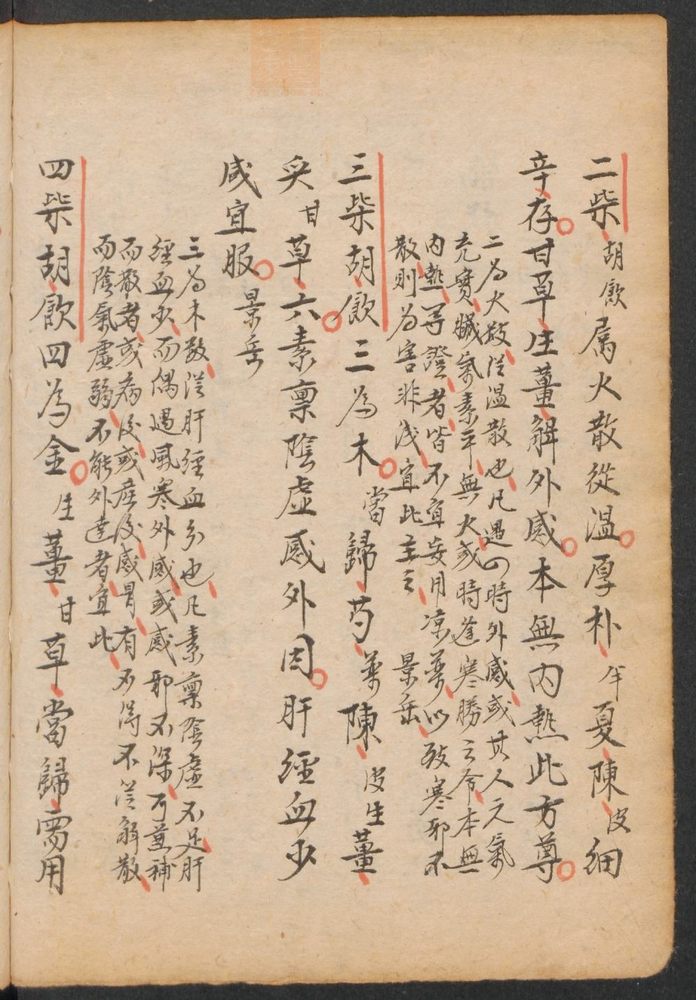 二柴胡飲属火散從溫厚朴半夏陳皮細
辛存甘草生薑解外感本無内熱此方尊
二為火數從溫散也凡遇四時外感或其人元氣
充實臟氣素平無火或時逢寒勝之令本無
内熱等證者皆不宜妄用凉藥以致寒邪不
散則為害非浅宜此主之 景岳
三柴胡飲三為木當歸芍藥陳皮生薑
炙甘草六素禀陰虚感外因肝經血少
咸宜服景岳
三為木數從肝經血分也凡素禀陰虚不足肝
經血少而偶遇風寒外感或感邪不深可兼補
而散者或病後或産後感冒有不得不從解散
而陰氣虛弱不能外達者宜此
四柴胡飲四為金生薑甘草當歸需用